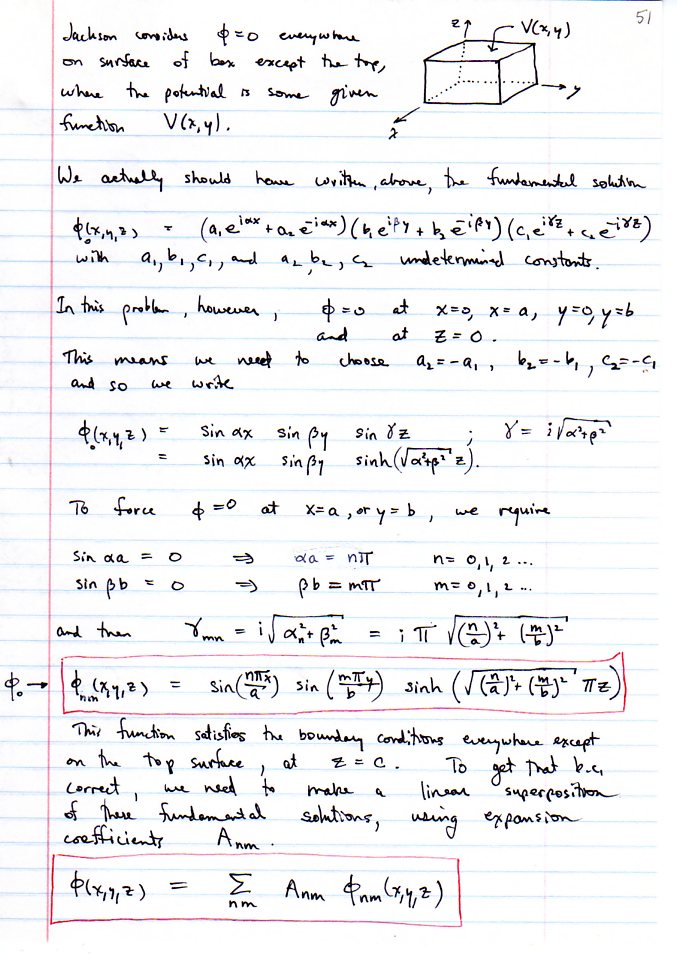 51
Jackson considers ϕ=0 everywhere
on surface of box except the top,
where the potential is some given
function V(x,y).
z
V(x,y)
y
x
We actually should have written, above, the fundamental solution
ϕ₀(x,y,z) = (a₁e^{iαx} + a₂e^{-iαx})(b₁e^{iβy} + b₂e^{-iβy})(c₁e^{iγz} + c₂e^{-iγz})
with a₁, b₁, c₁, and a₂, b₂, c₂ undetermined constants.
In this problem, however, ϕ=0 at x=0, x=a, y=0, y=b
and at z=0.
This means we need to choose a₂=-a₁, b₂=-b₁, c₂=-c₁
and so we write
ϕ₀(x,y,z) = sin αx sin βy sin γz ; γ = i√(α²+β²)
= sin αx sin βy sinh(√(α²+β²) z).
To force ϕ=0 at x=a, or y=b, we require
sin αa = 0 ⇒ αa = nπ n= 0,1,2 ...
sin βb = 0 ⇒ βb = mπ m= 0,1,2 ...
and then γₘₙ = i√(αₙ²+βₘ²) = i π √((n/a)²+(m/b)²)
ϕ₀ → ϕₙₘ(x,y,z) = sin(nπx/a) sin(mπy/b) sinh(√((n/a)²+(m/b)²) πz)
This function satisfies the boundary conditions everywhere except
on the top surface, at z=c. To get that b.c.
correct, we need to make a linear superposition
of these fundamental solutions, using expansion
coefficients Aₙₘ.
ϕ(x,y,z) = Σₙₘ Aₙₘ ϕₙₘ(x,y,z)